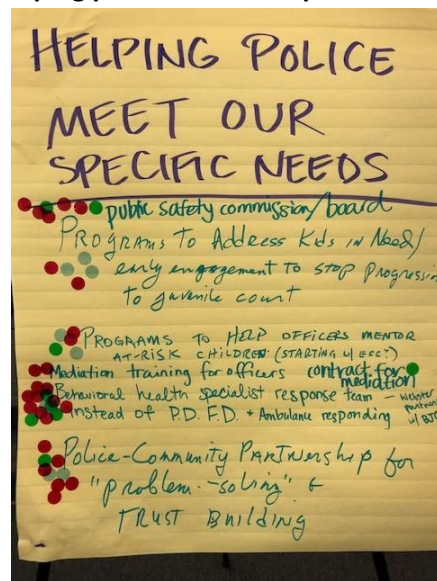 HELPING POLICE
MEET OUR
SPECIFIC NEEDS
public safety commission/board
PROGRAMS TO ADDRESS KIDS IN NEED/
early engagement TO STOP PROGRESSI
TO juvenile court
PROGRAMS TO HELP OFFICERS MENTOR
AT-RISK CHILDREN (STARTING W/ ECC?)
Mediation training for officers contract for
mediation
Behavioral health specialist response team – Webster
instead of P.D. F.D. + Ambulance responding w/ BJC
Police-Community PARTNership for
"problem-solving" &
TRUST BUILDING